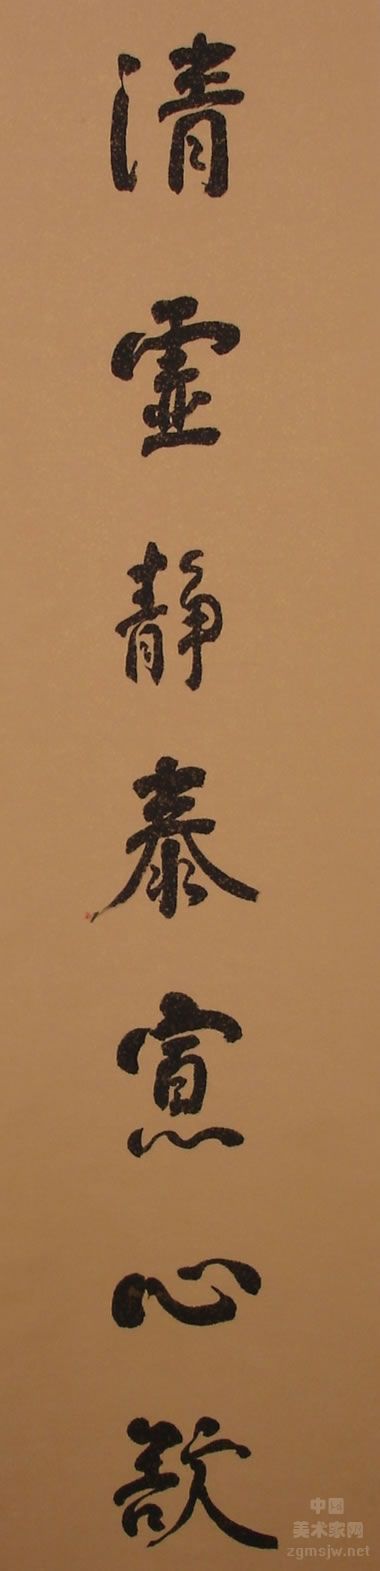 清虛靜泰寡心欲
中国
美术家网
zgmsjw.net